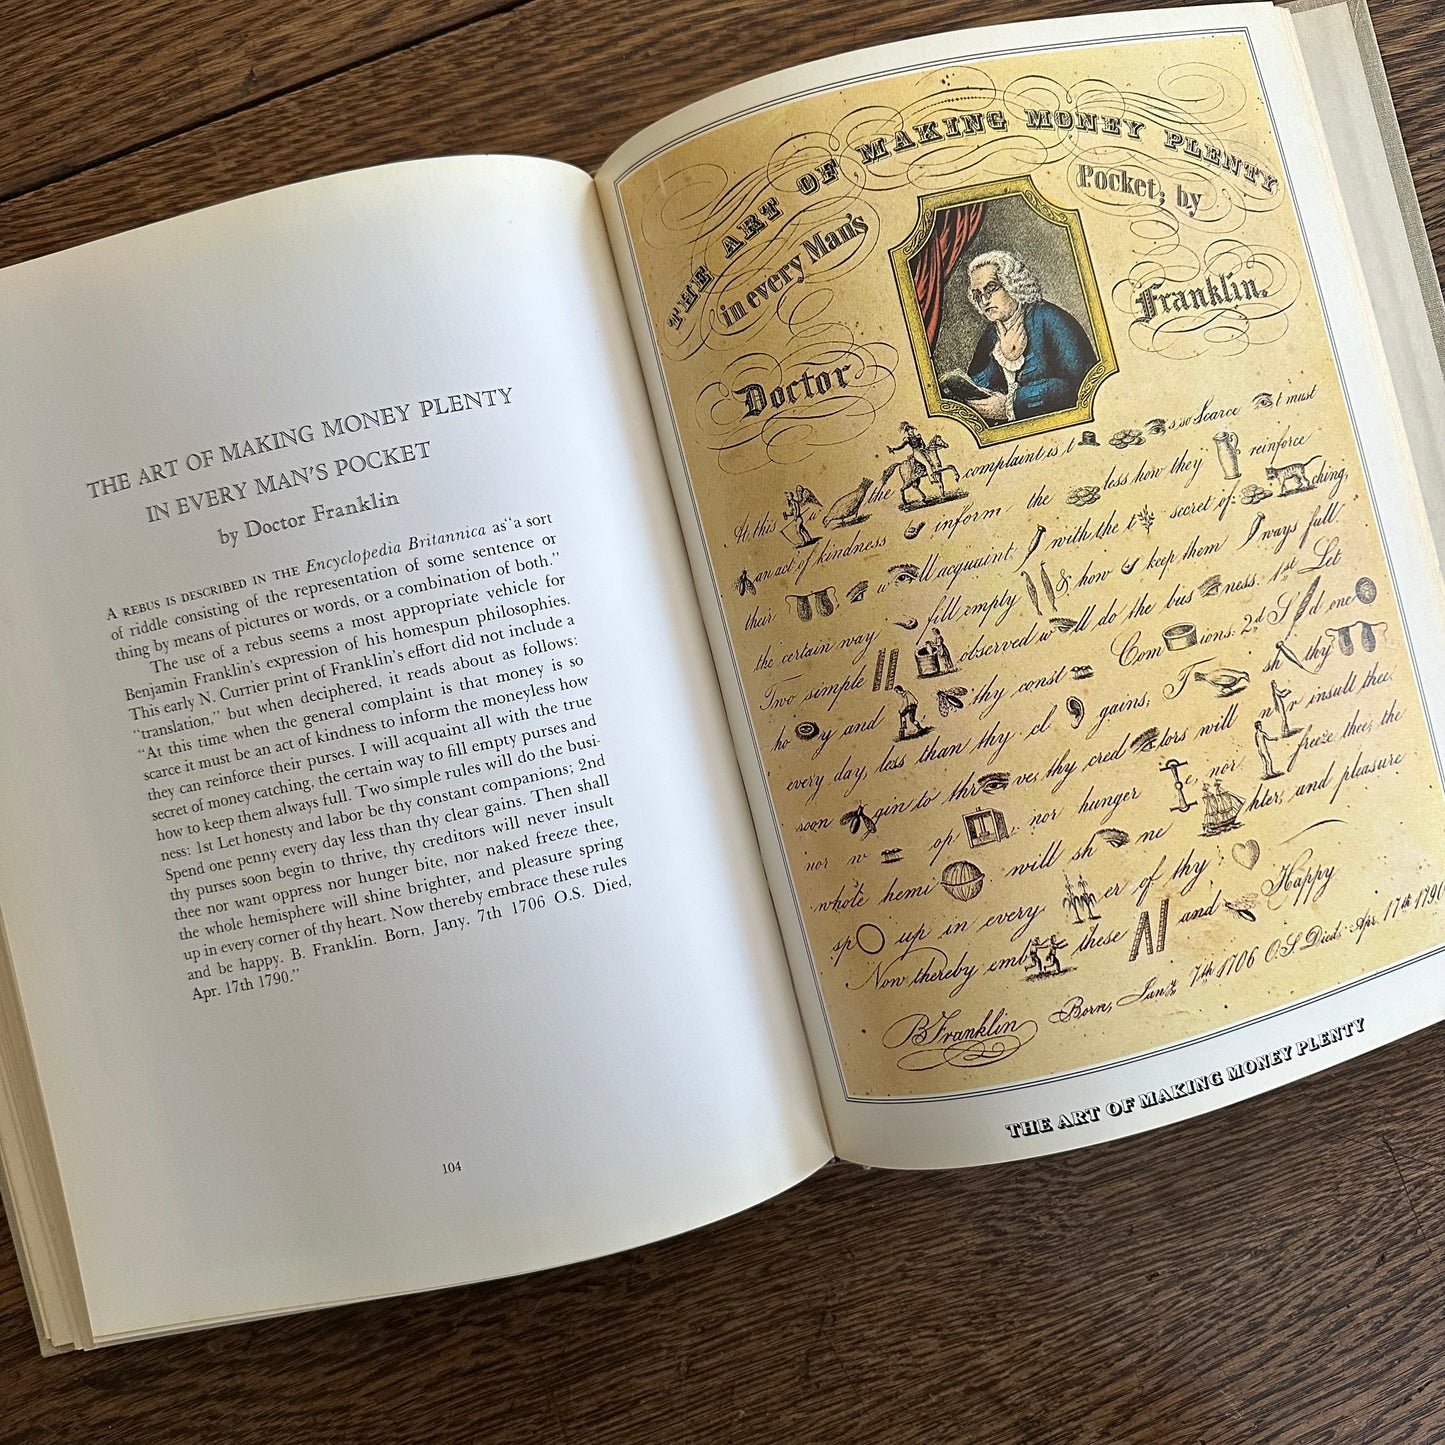 THE ART OF MAKING MONEY PLENTY
IN EVERY MAN'S POCKET
by Doctor Franklin
A REBUS IS DESCRIBED IN THE Encyclopedia Britannica as "a sort
of riddle consisting of the representation of some sentence or
thing by means of pictures or words, or a combination of both."
The use of a rebus seems a most appropriate vehicle for
Benjamin Franklin's expression of his homespun philosophies.
This early N. Currier print of Franklin's effort did not include a
"translation," but when deciphered, it reads about as follows:
"At this time when the general complaint is that money is so
scarce it must be an act of kindness to inform the moneyless how
they can reinforce their purses. I will acquaint all with the true
secret of money catching, the certain way to fill empty purses and
how to keep them always full. Two simple rules will do the busi-
ness: 1st Let honesty and labor be thy constant companions; 2nd
Spend one penny every day less than thy clear gains. Then shall
thy purses soon begin to thrive, thy creditors will never insult
thee nor want oppress nor hunger bite, nor naked freeze thee,
the whole hemisphere will shine brighter, and pleasure spring
up in every corner of thy heart. Now thereby embrace these rules
and be happy. B. Franklin. Born, Jany. 7th 1706 O.S. Died,
Apr. 17th 1790."
104
THE ART OF MAKING MONEY PLENTY
in every Man's Pocket; by
Doctor Franklin.
At this the complaint is t s so Scarce t must
an act of kindness inform the less how they reinforce
their w ll acquaint with the t secret of: ching,
the certain way fill empty & how keep them ways full.
Two simple observed w ll do the bus ness. 1st Let
ho y and thy const Com ions: 2d S d one
every day, less than thy cl gains; T sh thy
soon gin to thr ve, thy cred tors will n r insult thee
nor w op : nor hunger e, nor freeze thee; the
whole hemi will sh ne hter; and pleasure
sp up in every er of thy :
Now thereby emb these and Happy
B Franklin Born, Jany 7th 1706 O.S. Died Apr. 17th 1790
THE ART OF MAKING MONEY PLENTY